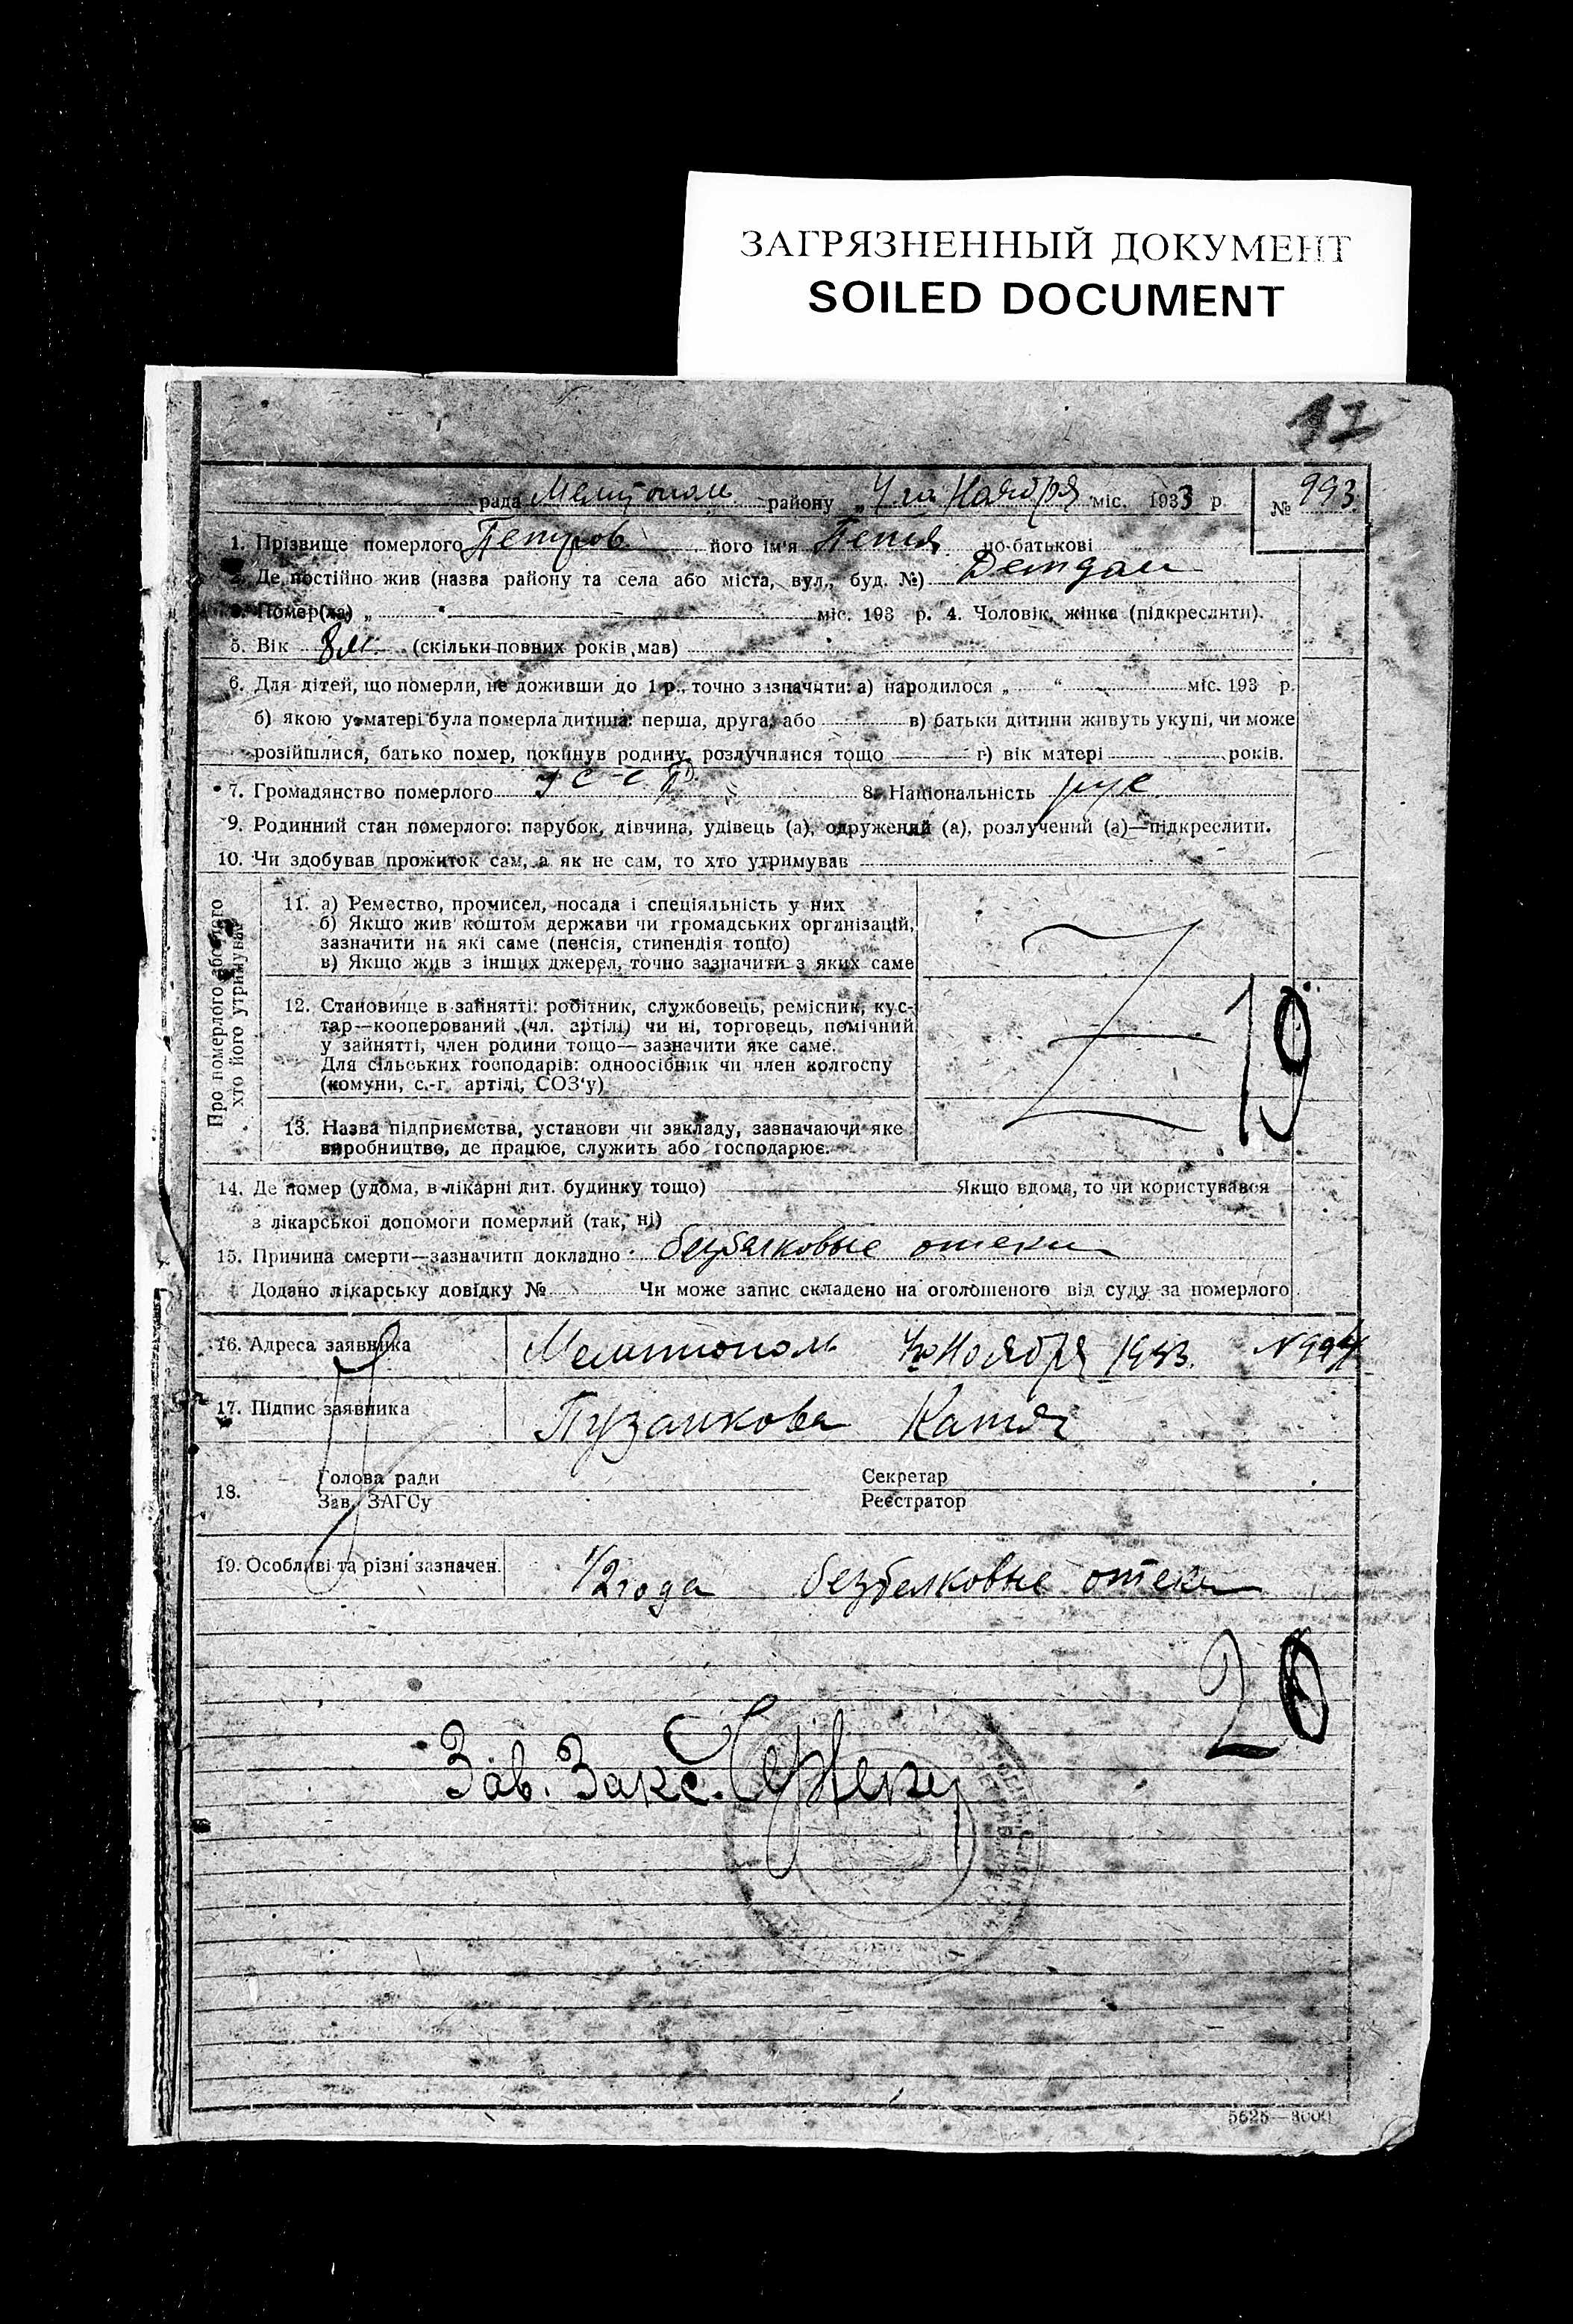 ЗАГРЯЗНЕННЫЙ ДОКУМЕНТ
SOILED DOCUMENT
17
рада Мелитополь району „ 4 го Ноября міс. 1933 р. № 993.
1. Прізвище померлого Петров його ім'я Петя по-батькові
2. Де постійно жив (назва району та села або міста, вул., буд. №) Детдом
3. Помер(ла) „ “ міс. 193 р. 4. Чоловік, жінка (підкреслити).
5. Вік 8 м. (скільки повних років мав)
6. Для дітей, що померли, не доживши до 1 р., точно зазначити: а) народилося „ “ міс. 193 р.
б) якою у матері була померла дитина: перша, друга, або в) батьки дитини живуть укупі, чи може
розійшлися, батько помер, покинув родину, розлучилися тощо г) вік матері років.
7. Громадянство померлого УССР 8. Національність рус.
9. Родинний стан померлого: парубок, дівчина, удівець (а), одружений (а), розлучений (а)—підкреслити.
10. Чи здобував прожиток сам, а як не сам, то хто утримував
Про померлого або того
хто його утримував
11. а) Ремество, промисел, посада і спеціяльність у них
б) Якщо жив коштом держави чи громадських організацій,
зазначити на які саме (пенсія, стипендія тощо)
в) Якщо жив з інших джерел, точно зазначити з яких саме
12. Становище в занятті: робітник, службовець, ремісник, кус-
тар—кооперований (чл. артілі) чи ні, торговець, помічний
у зайнятті, член родини тощо—зазначити яке саме.
Для сільських господарів: одноосібник чи член колгоспу
(комуни, с.-г. артілі, СОЗ'у)
19
13. Назва підприємства, установи чи закладу, зазначаючи яке
виробництво, де працює, служить або господарює.
14. Де помер (удома, в лікарні дит. будинку тощо) Якщо вдома, то чи користувався
з лікарської допомоги померлий (так, ні)
15. Причина смерти—зазначити докладно безбелковые отеки
Додано лікарську довідку № Чи може запис складено на оголошеного від суду за померлого
16. Адреса заявника Мелитополь 4го Ноября 1933. N 994
17. Підпис заявника Пузанкова Катя
18. Голова ради Секретар
Зав. ЗАГСу Реєстратор
19. Особливі та різні зазначен. 1/2 года безбелковые отеки
20
Зав. Загс.
5625—3000